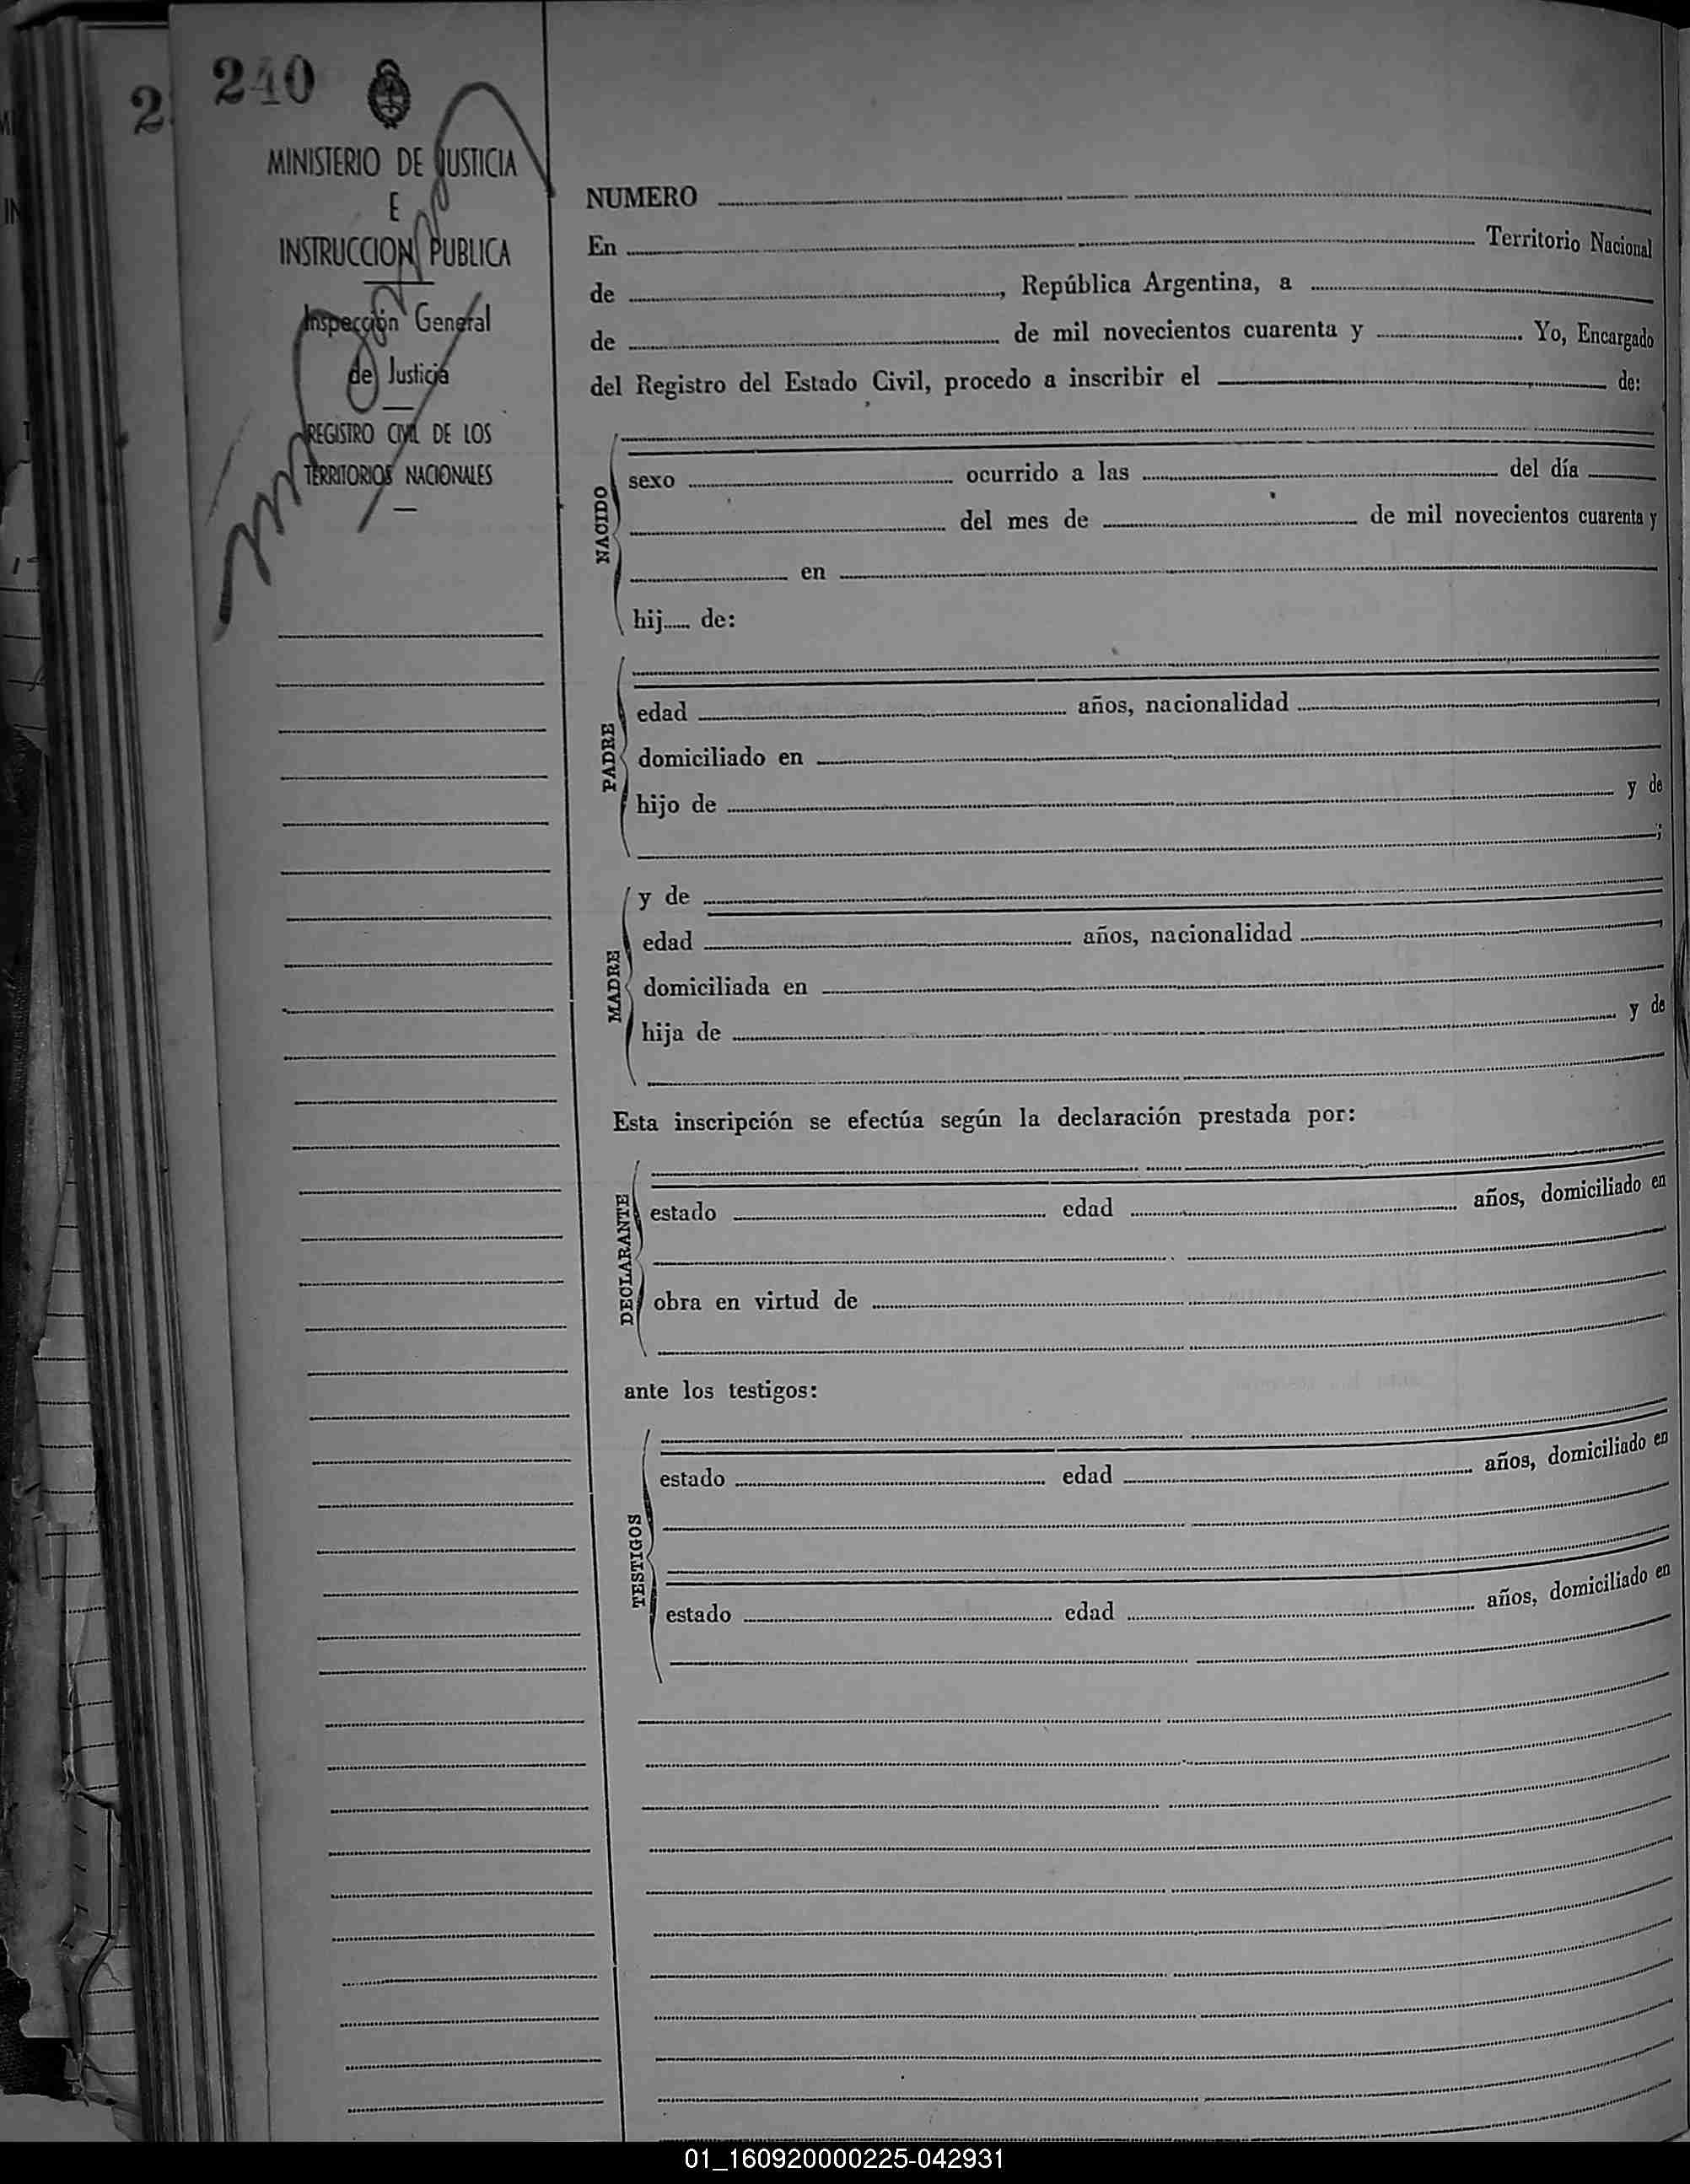 240
2
MINISTERIO DE JUSTICIA
E
INSTRUCCION PUBLICA
Inspección General
de Justicia
REGISTRO CIVIL DE LOS
TERRITORIOS NACIONALES
NUMERO
En Territorio Nacional
de , República Argentina, a
de de mil novecientos cuarenta y Yo, Encargado
del Registro del Estado Civil, procedo a inscribir el de:
NACIDO
sexo ocurrido a las del día
del mes de de mil novecientos cuarenta y
en
hij...... de:
PADRE
edad años, nacionalidad ,
domiciliado en
hijo de y de
;
MADRE
y de
edad años, nacionalidad ,
domiciliada en
hija de y de
Esta inscripción se efectúa según la declaración prestada por:
DECLARANTE
estado edad años, domiciliado en
obra en virtud de
ante los testigos:
TESTIGOS
estado edad años, domiciliado en
estado edad años, domiciliado en
01_160920000225-042931